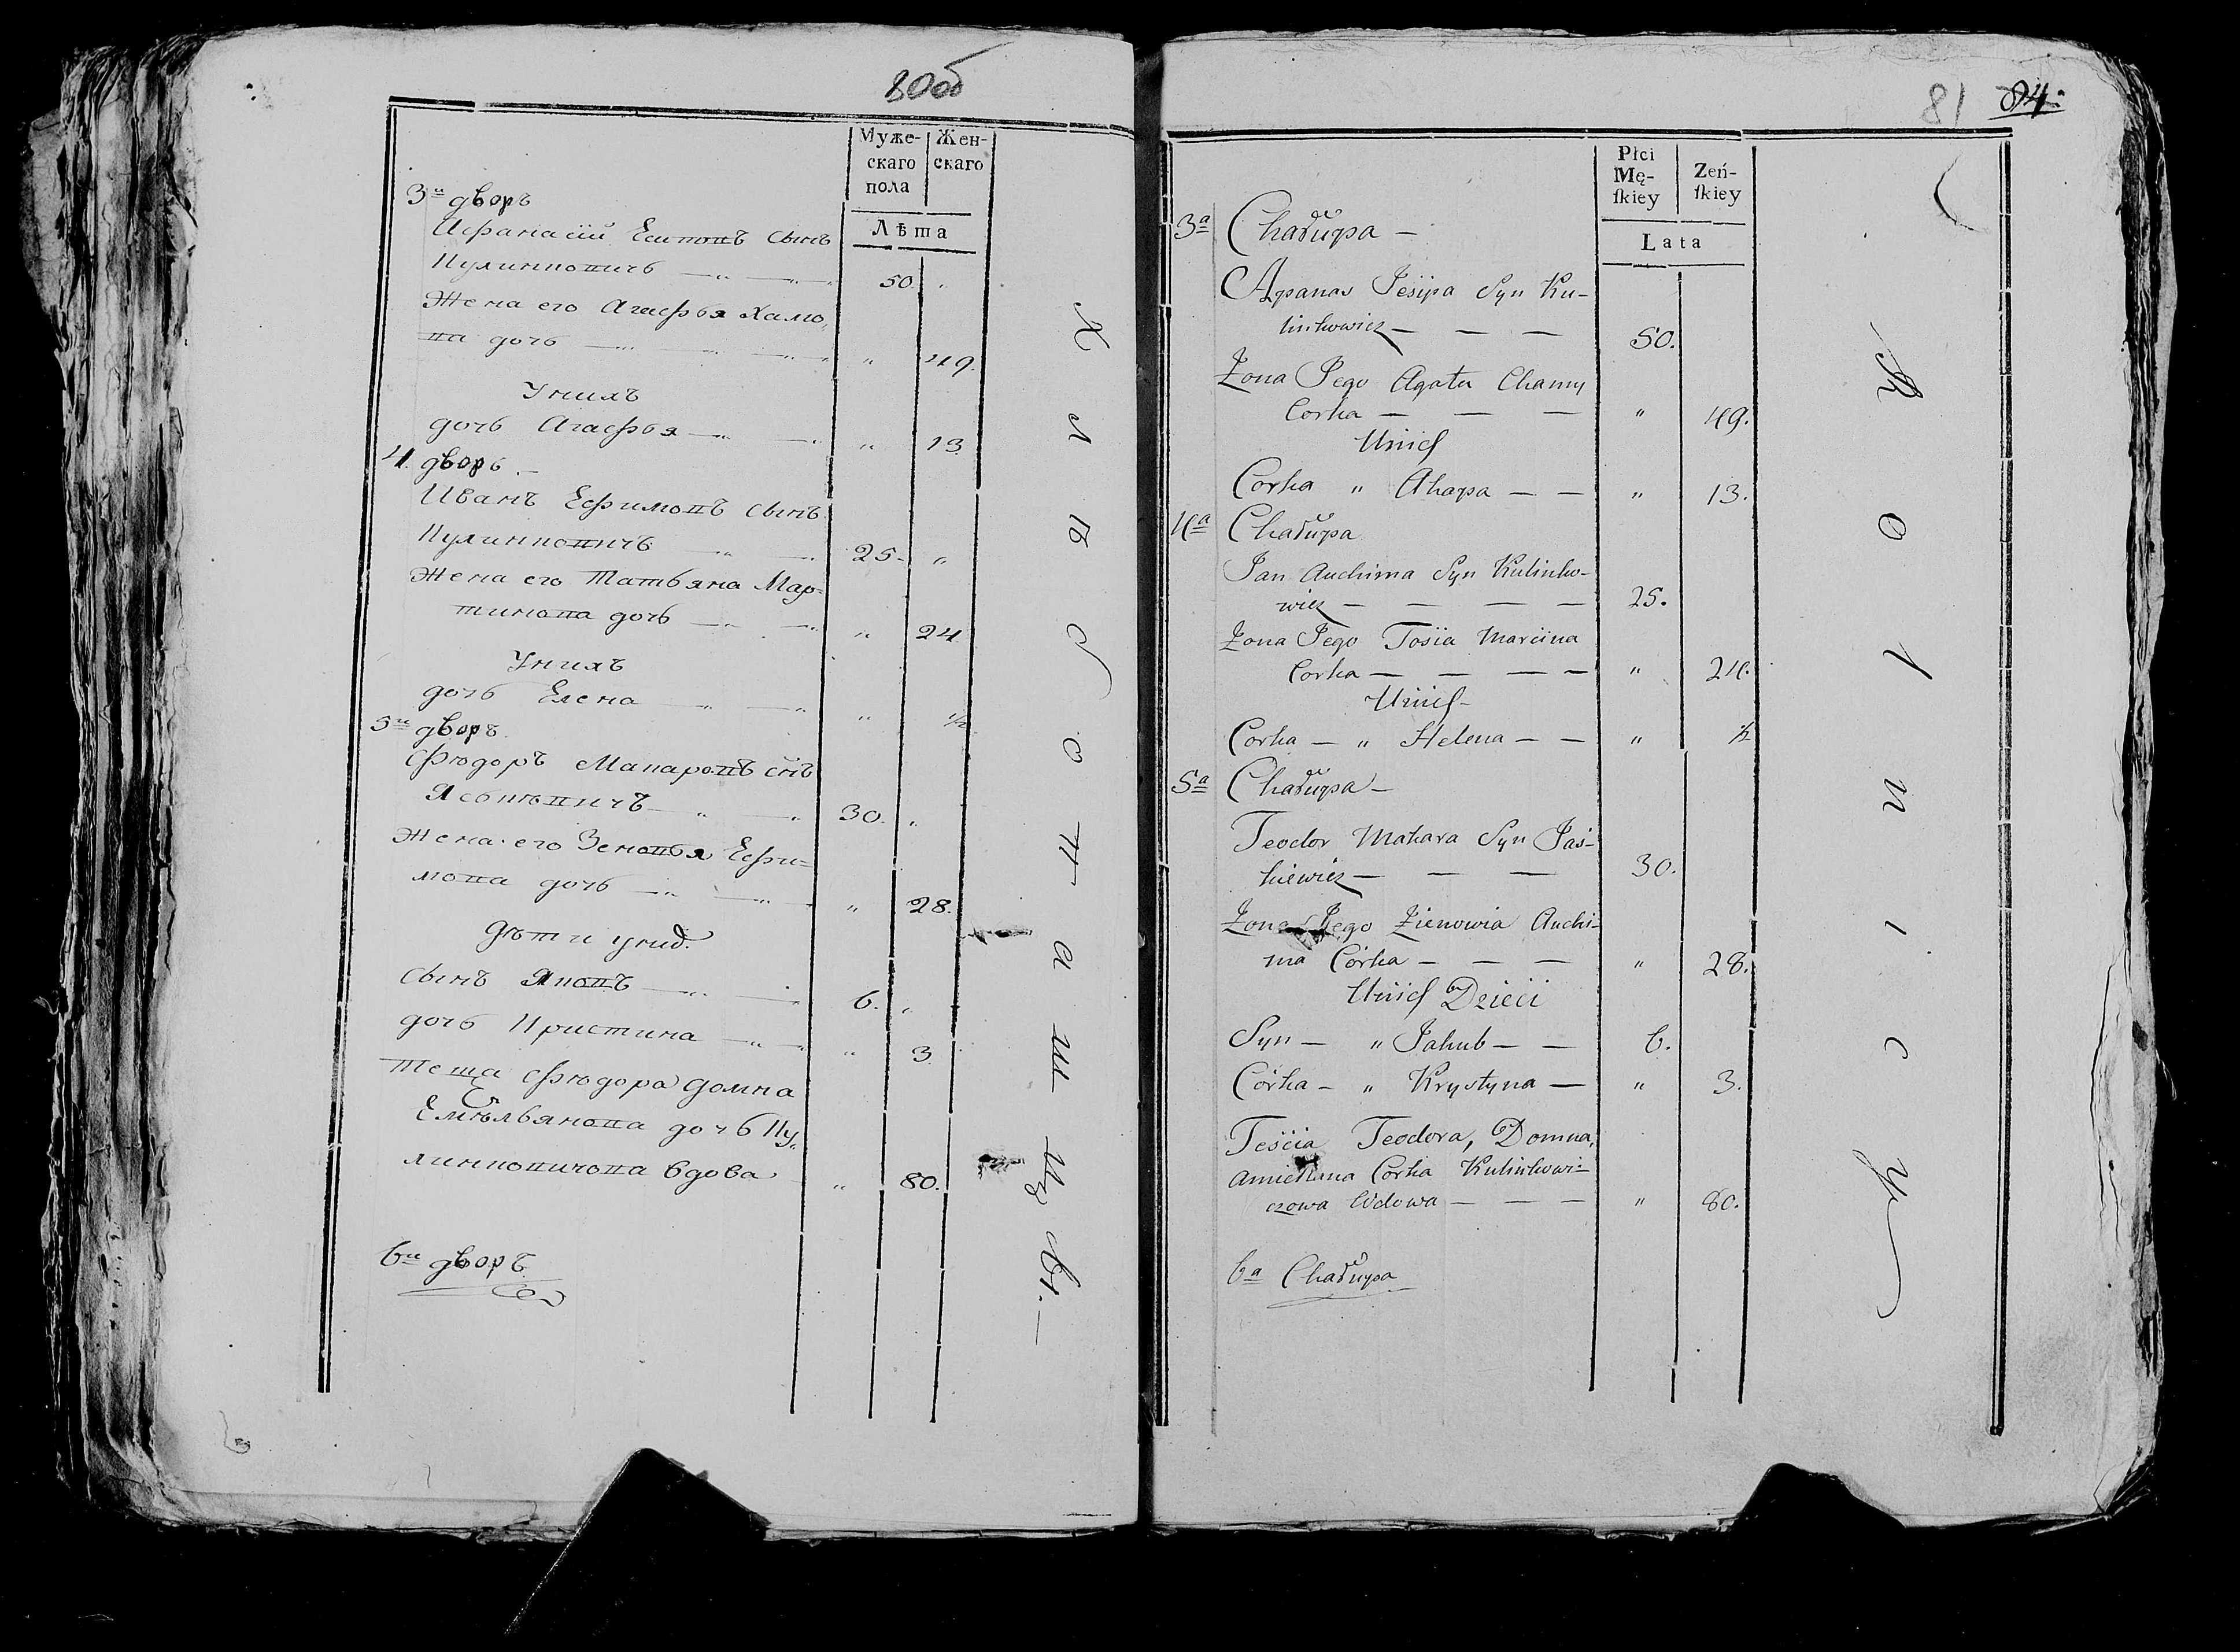 80об
Муже-
скаго
пола
Жен-
скаго
Лѣта
3й дворъ
Афанасій Есиповъ сынъ
Кулинковичь 50. "
Жена его Агафья Хамо,
ва дочь " 49.
У нихъ
дочь Агафья " 13
4. дворъ
Иванъ Ефимовъ сынъ
Кулинковичъ 25. "
Жена его Татьяна Мар-
тинова дочь " 24
У нихъ
дочь Елена " ½
5й дворъ.
Фіодоръ Макаровъ снъ
Яськевичъ 30. "
Жена его Зеновья Ефи=
мова дочь " 28.
Дѣти у нид.
сынъ Яковъ 6. "
дочь Кристина " 3
Теща Фіодора Домна
Емельянова дочь Ку,,
линковичова вдова " 80.
6й дворъ
Хлѣбопашцы.
81 84.
Płci
Mę-
ſkiey
Zeń-
ſkiey
Lata
3a Chałupa —
Apanas Jesipa Syn Ku-
linkowicz — — — 50.
Żona Jego Agata Chamy
Corka — — — " 49.
Unich
Corka " Ahapa — — " 13.
4a Chałupa
Jan Auchima Syn Kulinko-
wicz — — — — 25.
Żona Jego Tosia Marcina
Corka — — — — " 24.
Unich
Corka — " Helena — — " ½
5a Chałupa —
Teodor Makara Syn Jaś-
kiewicz — — — 30.
Żona Jego Zienowia Auchi-
ma Córka — — — " 28.
Unich Dzieci
Syn — " Jakub — — 6.
Córka — " Krystyna — " 3.
Teścia Teodora, Domna,
Amieliana Corka Kulinkowi-
czowa Wdowa — — — " 80.
6a Chałupa
Rolnicy